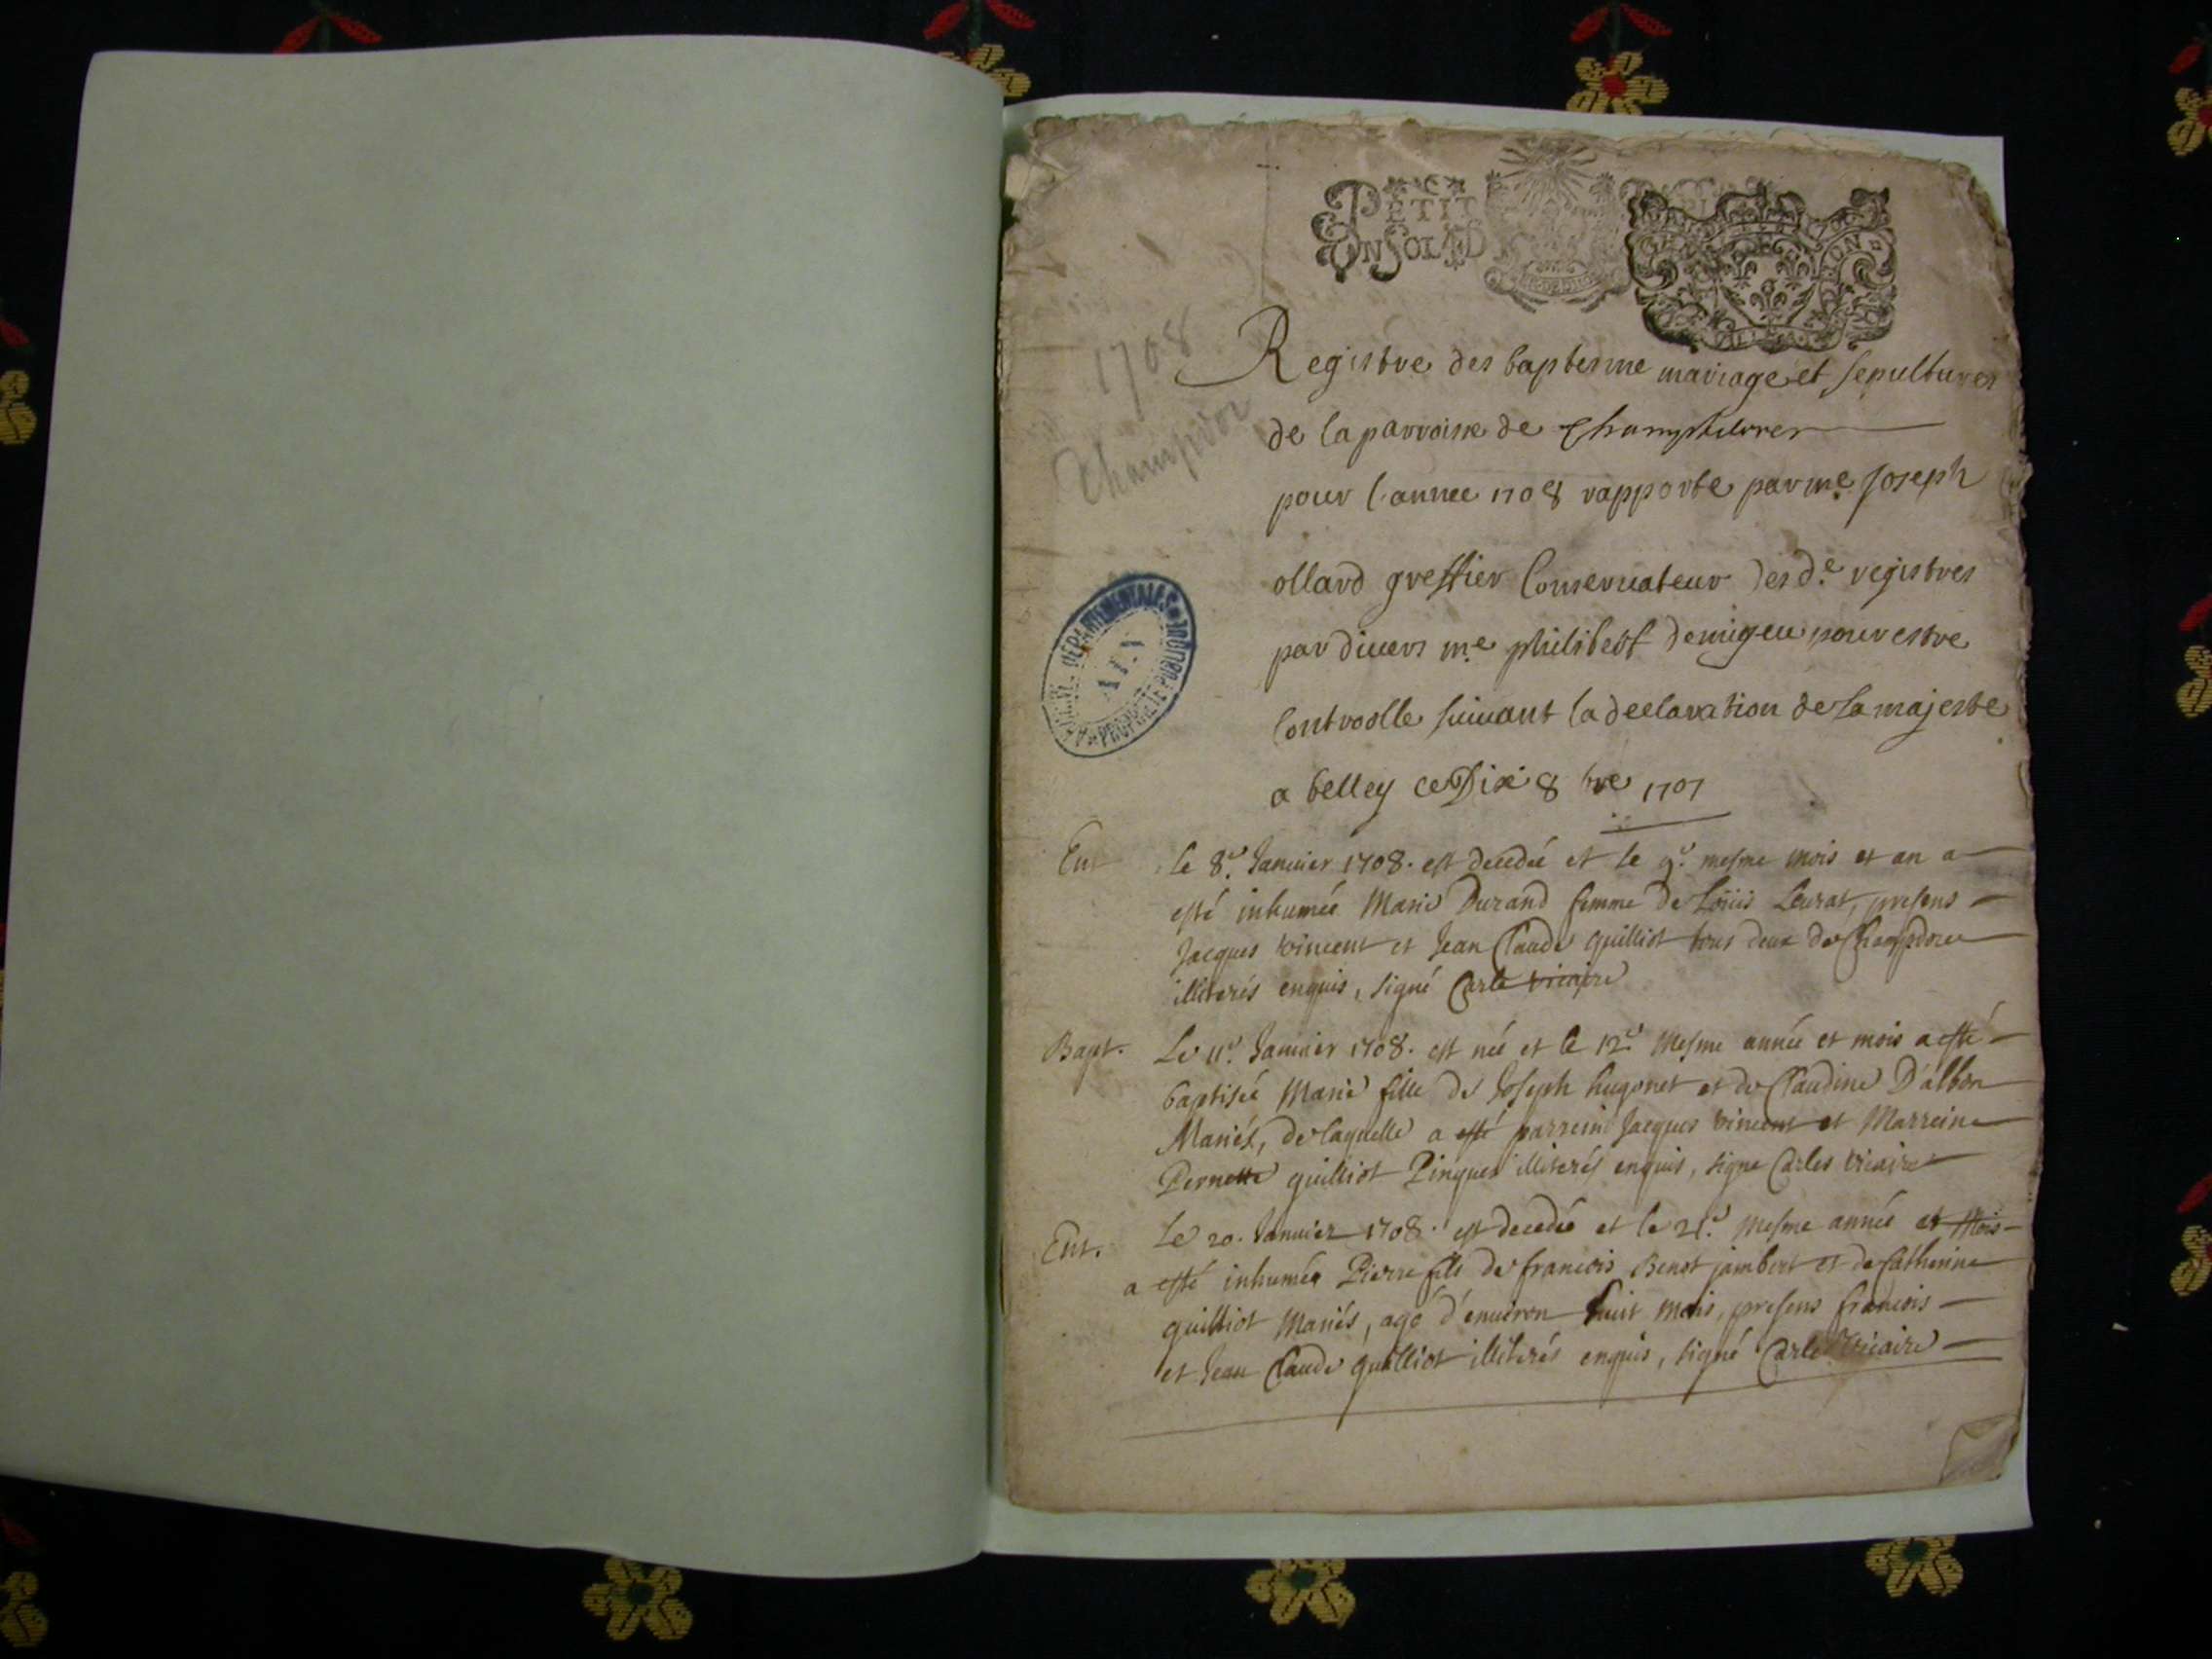 PETIT
EN SOL
1708
Registre des baptesme mariage et sepultures
de la parroisse de
pour l'annee 1708 rapporte par me Joseph
ollard greffier Conservateur des de registres
par divers me philibert demigeu pour estre
Controolle suivant la declaration de sa majeste
a belley ce Dixe 8 bre 1707
ARCHIVES DEPARTEMENTALES
AIN
PROPRIETE PUBLIQUE
Ent
le 8e Janvier 1708. est decedée et le 9e mesme mois et an a
esté inhumée Marie Durand femme de Loüis Leurat, presens
Jacques vincent et Jean Claude guilliot tous deux de Champdore
illiterés enquis, signé Carle vicaire
Bapt.
Le 11e Janvier 1708. est née et le 12e mesme année et mois a esté
baptisée Marie fille de Joseph hugonet et de Claudine D'albon
Mariés, de laquelle a esté parrein Jacques vincent et Marreine
Pernette guilliot Pinques illiterés enquis, signe Carles vicaire
Ent.
Le 20. Janvier 1708. est decedé et le 21e mesme année et mois
a esté inhumé Pierre fils de francois Benet jambert et de Catherine
guilliot Mariés, agé d'environ huit mois, presens francois
et Jean Claude guilliot illiterés enquis, signé Carle vicaire